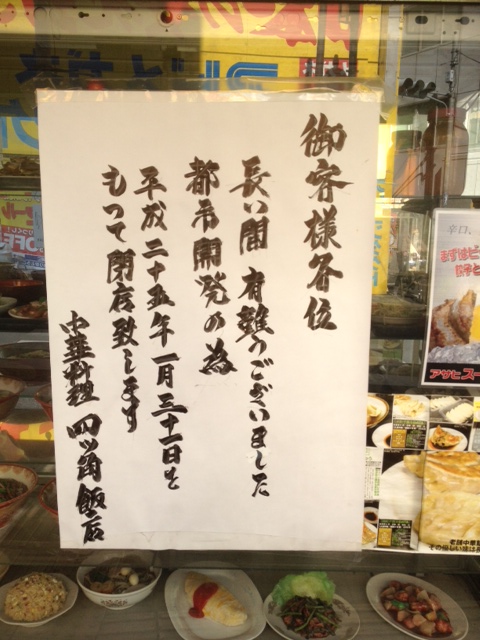 御客様各位
長い間有難うございました
都市開発の為
平成二十五年一月三十一日を
もって閉店致します
中華料理 四ツ角飯店
辛口、
まずはビ
餃子と
アサヒスー
老舗中華
その優しい味は